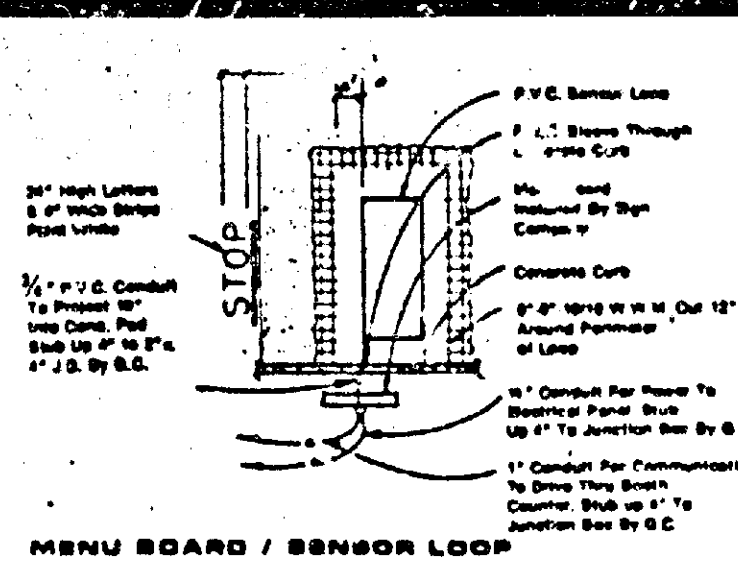 24" High Letters
& 4" Wide Stripe
Paint White
STOP
3/4" P.V.C. Conduit
To Project 18"
Into Conc. Pad
Stub Up 4" to 2"x
4" J.B. By G.C.
P.V.C. Sensor Loop
Sleeve Through
Curb
Installed By Sign
Company
Concrete Curb
6"-6" 10/10 W W M Cut 12"
Around Perimeter
of Loop
Conduit For Power To
Electrical Panel Stub
Up 4" To Junction Box By G
1" Conduit For Communicati
To Drive Thru Booth
Counter. Stub up 4" To
Junction Box By G.C
MENU BOARD / SENSOR LOOP